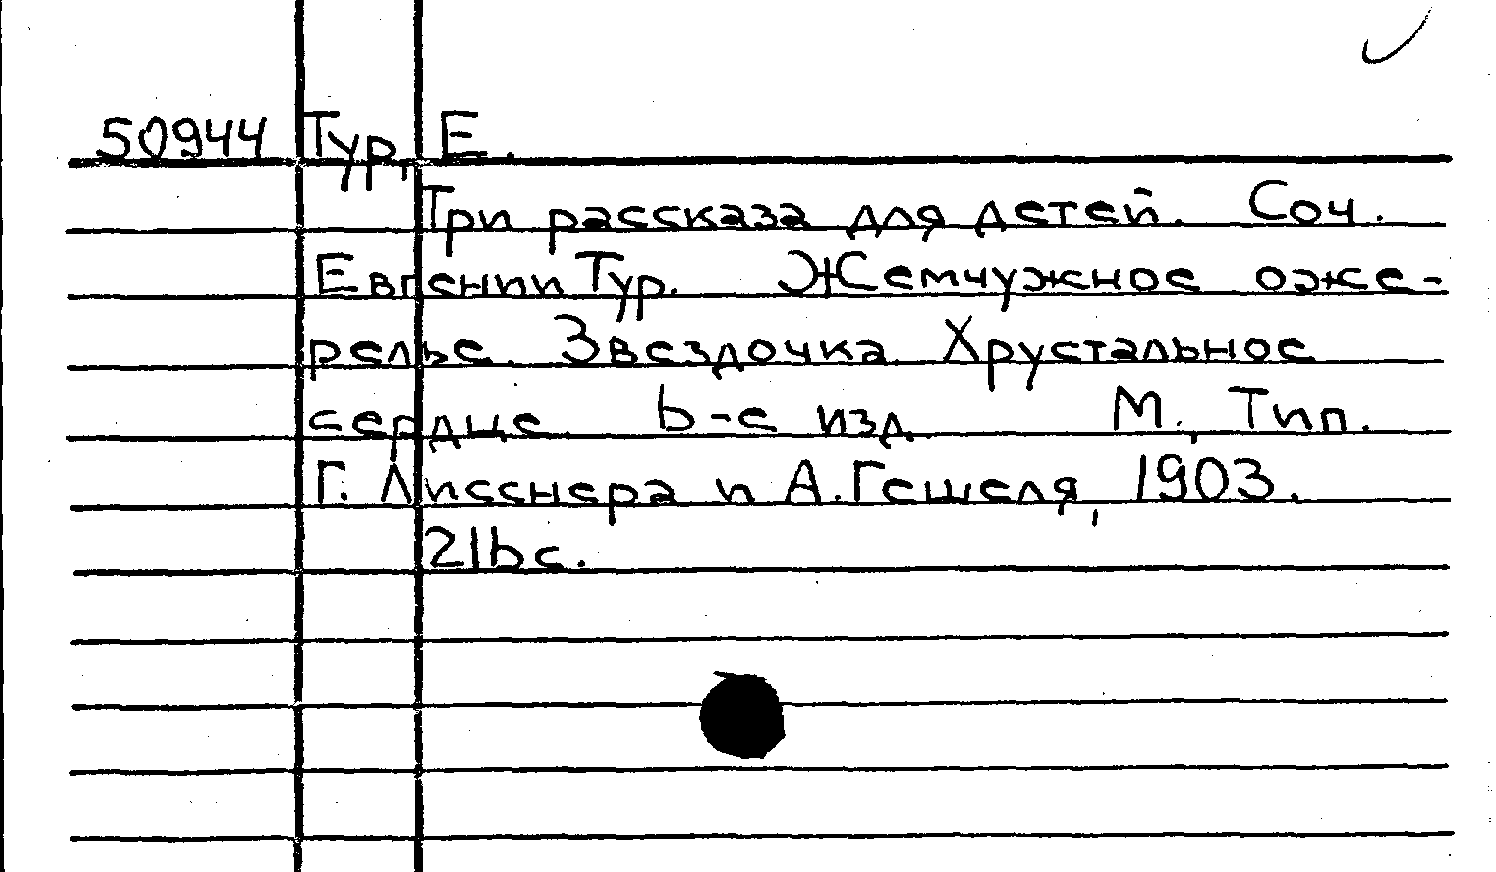 50944 Тур, Е.
Три рассказа для детей. Соч.
Евгении Тур. Жемчужное оже-
релье. Звездочка. Хрустальное
сердце. 6-е изд. М., Тип.
Г. Лисснера и А. Гешеля, 1903.
216 с.